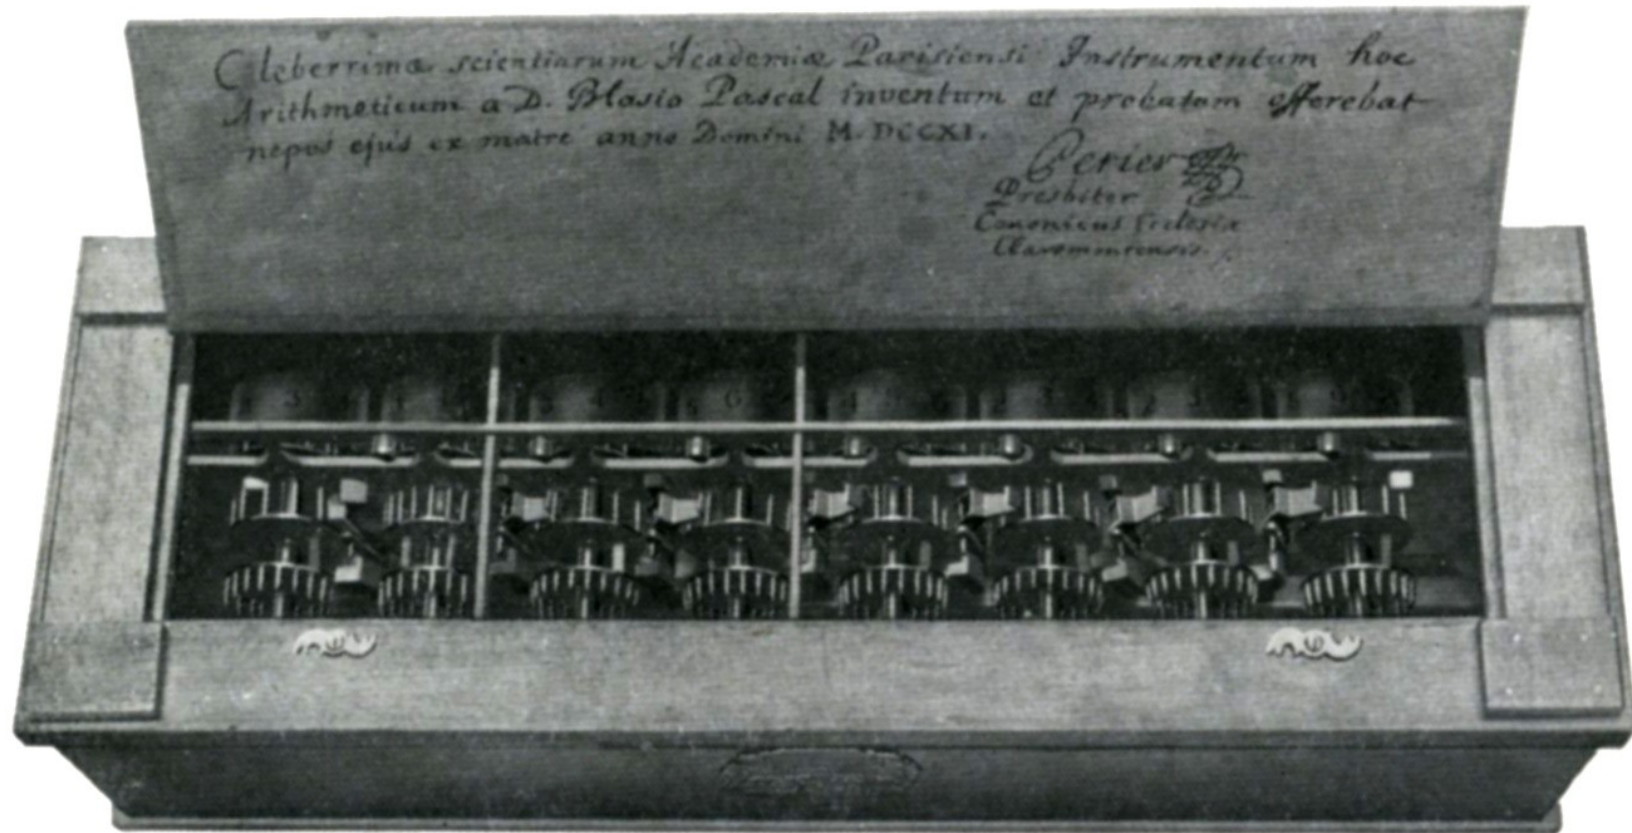 Celeberrimæ scientiarum Academiæ Parisiensi Instrumentum hoc
Arithmeticum a D. Blasio Pascal inventum et probatum offerebat
nepos ejus ex matre anno Domini M.DCCXI.
Perier
Presbiter
Canonicus Ecclesiæ